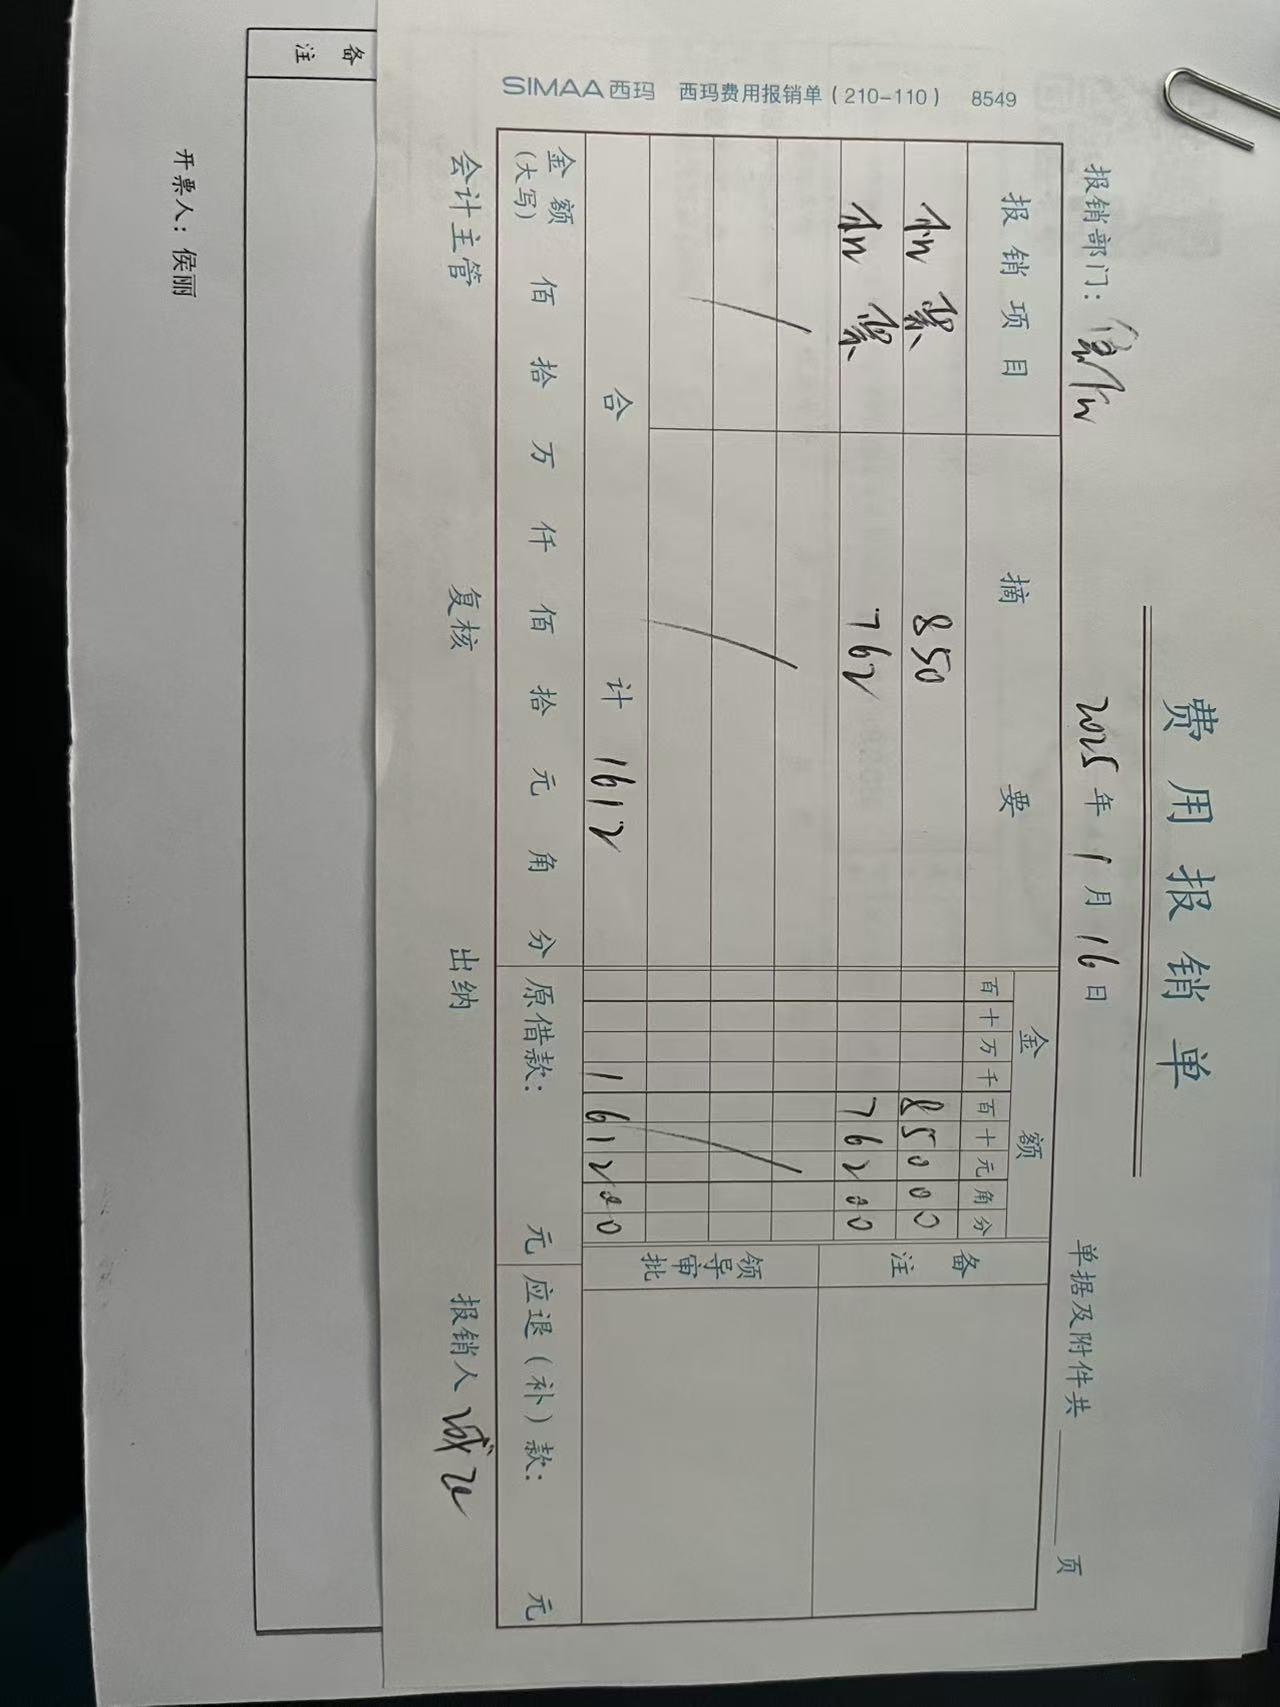 费用报销单
报销部门：
2025年1月16日
单据及附件共 页
报销项目 摘要 金额 备注
百十万千百十元角分
机票 850 85000
机票 762 76200
领导审批
合计 1612 161200
金额（大写） 佰 拾 万 仟 佰 拾 元 角 分 原借款： 元 应退（补）款： 元
会计主管 复核 出纳 报销人
SIMAA西玛 西玛费用报销单（210-110） 8549
备注
开票人：侯丽